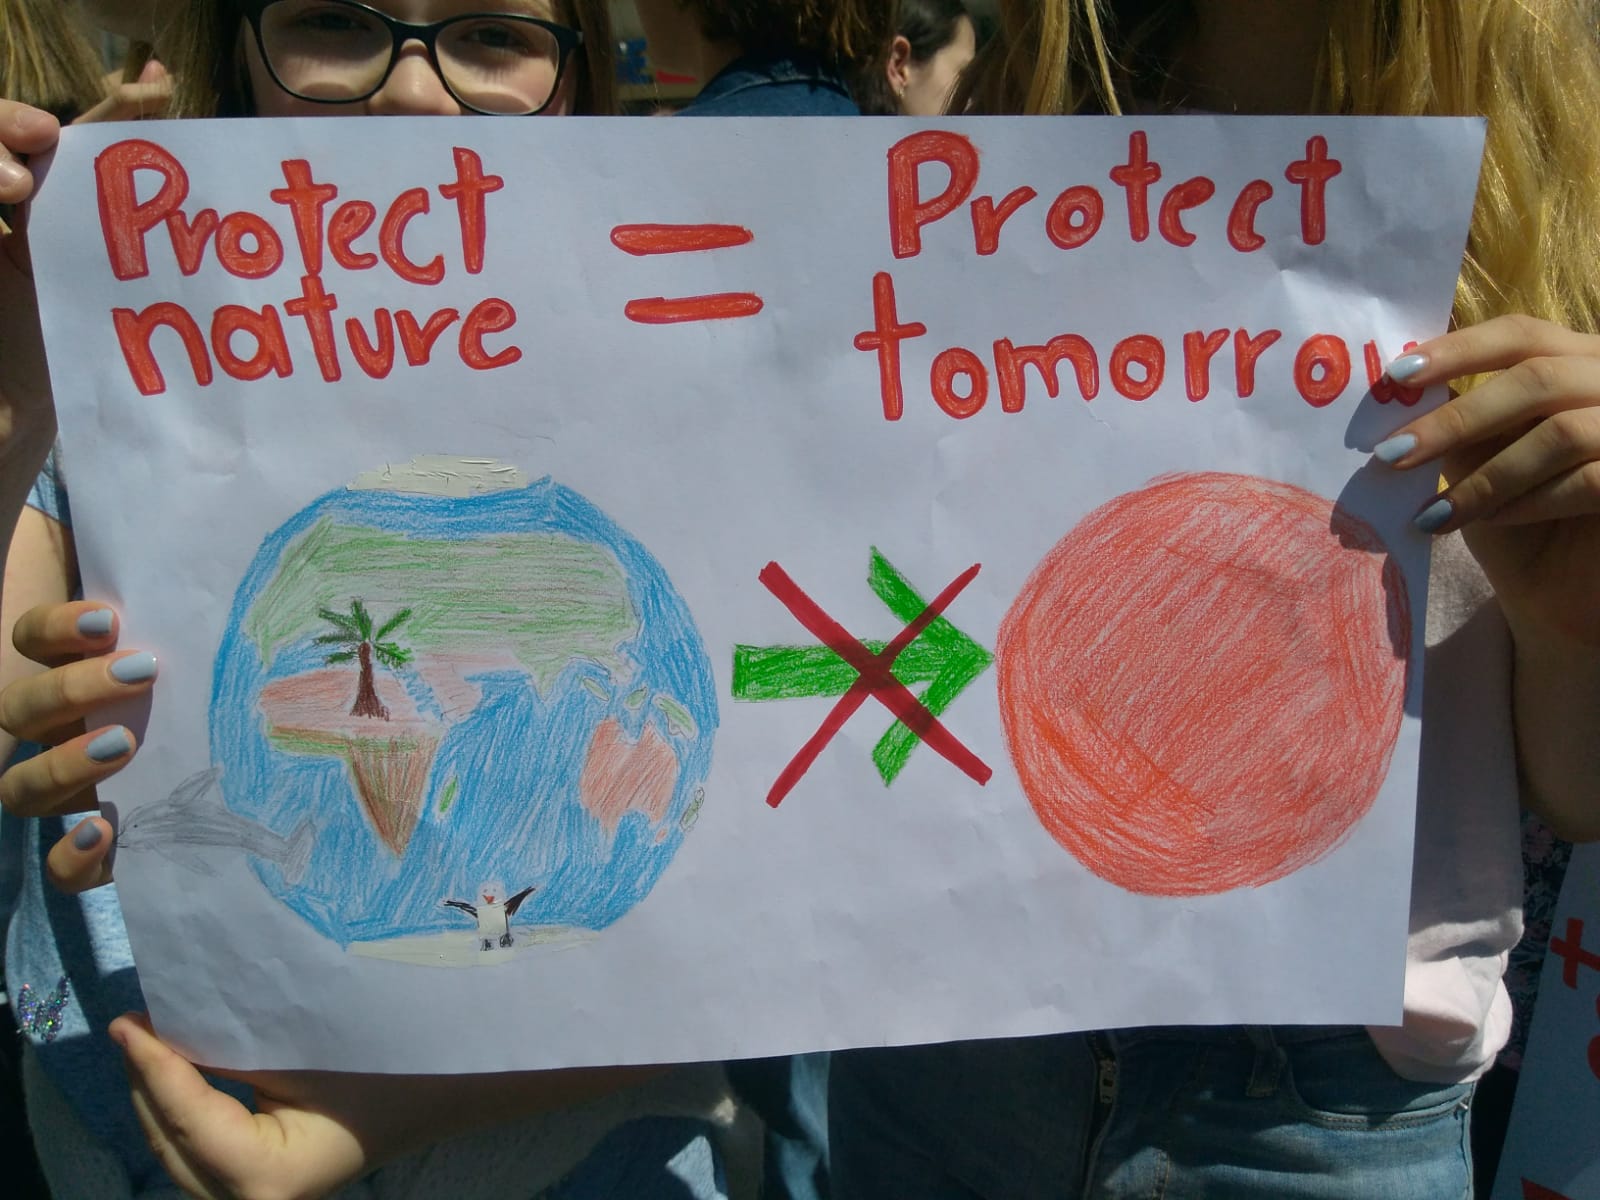 Protect
nature
=
Protect
tomorrow